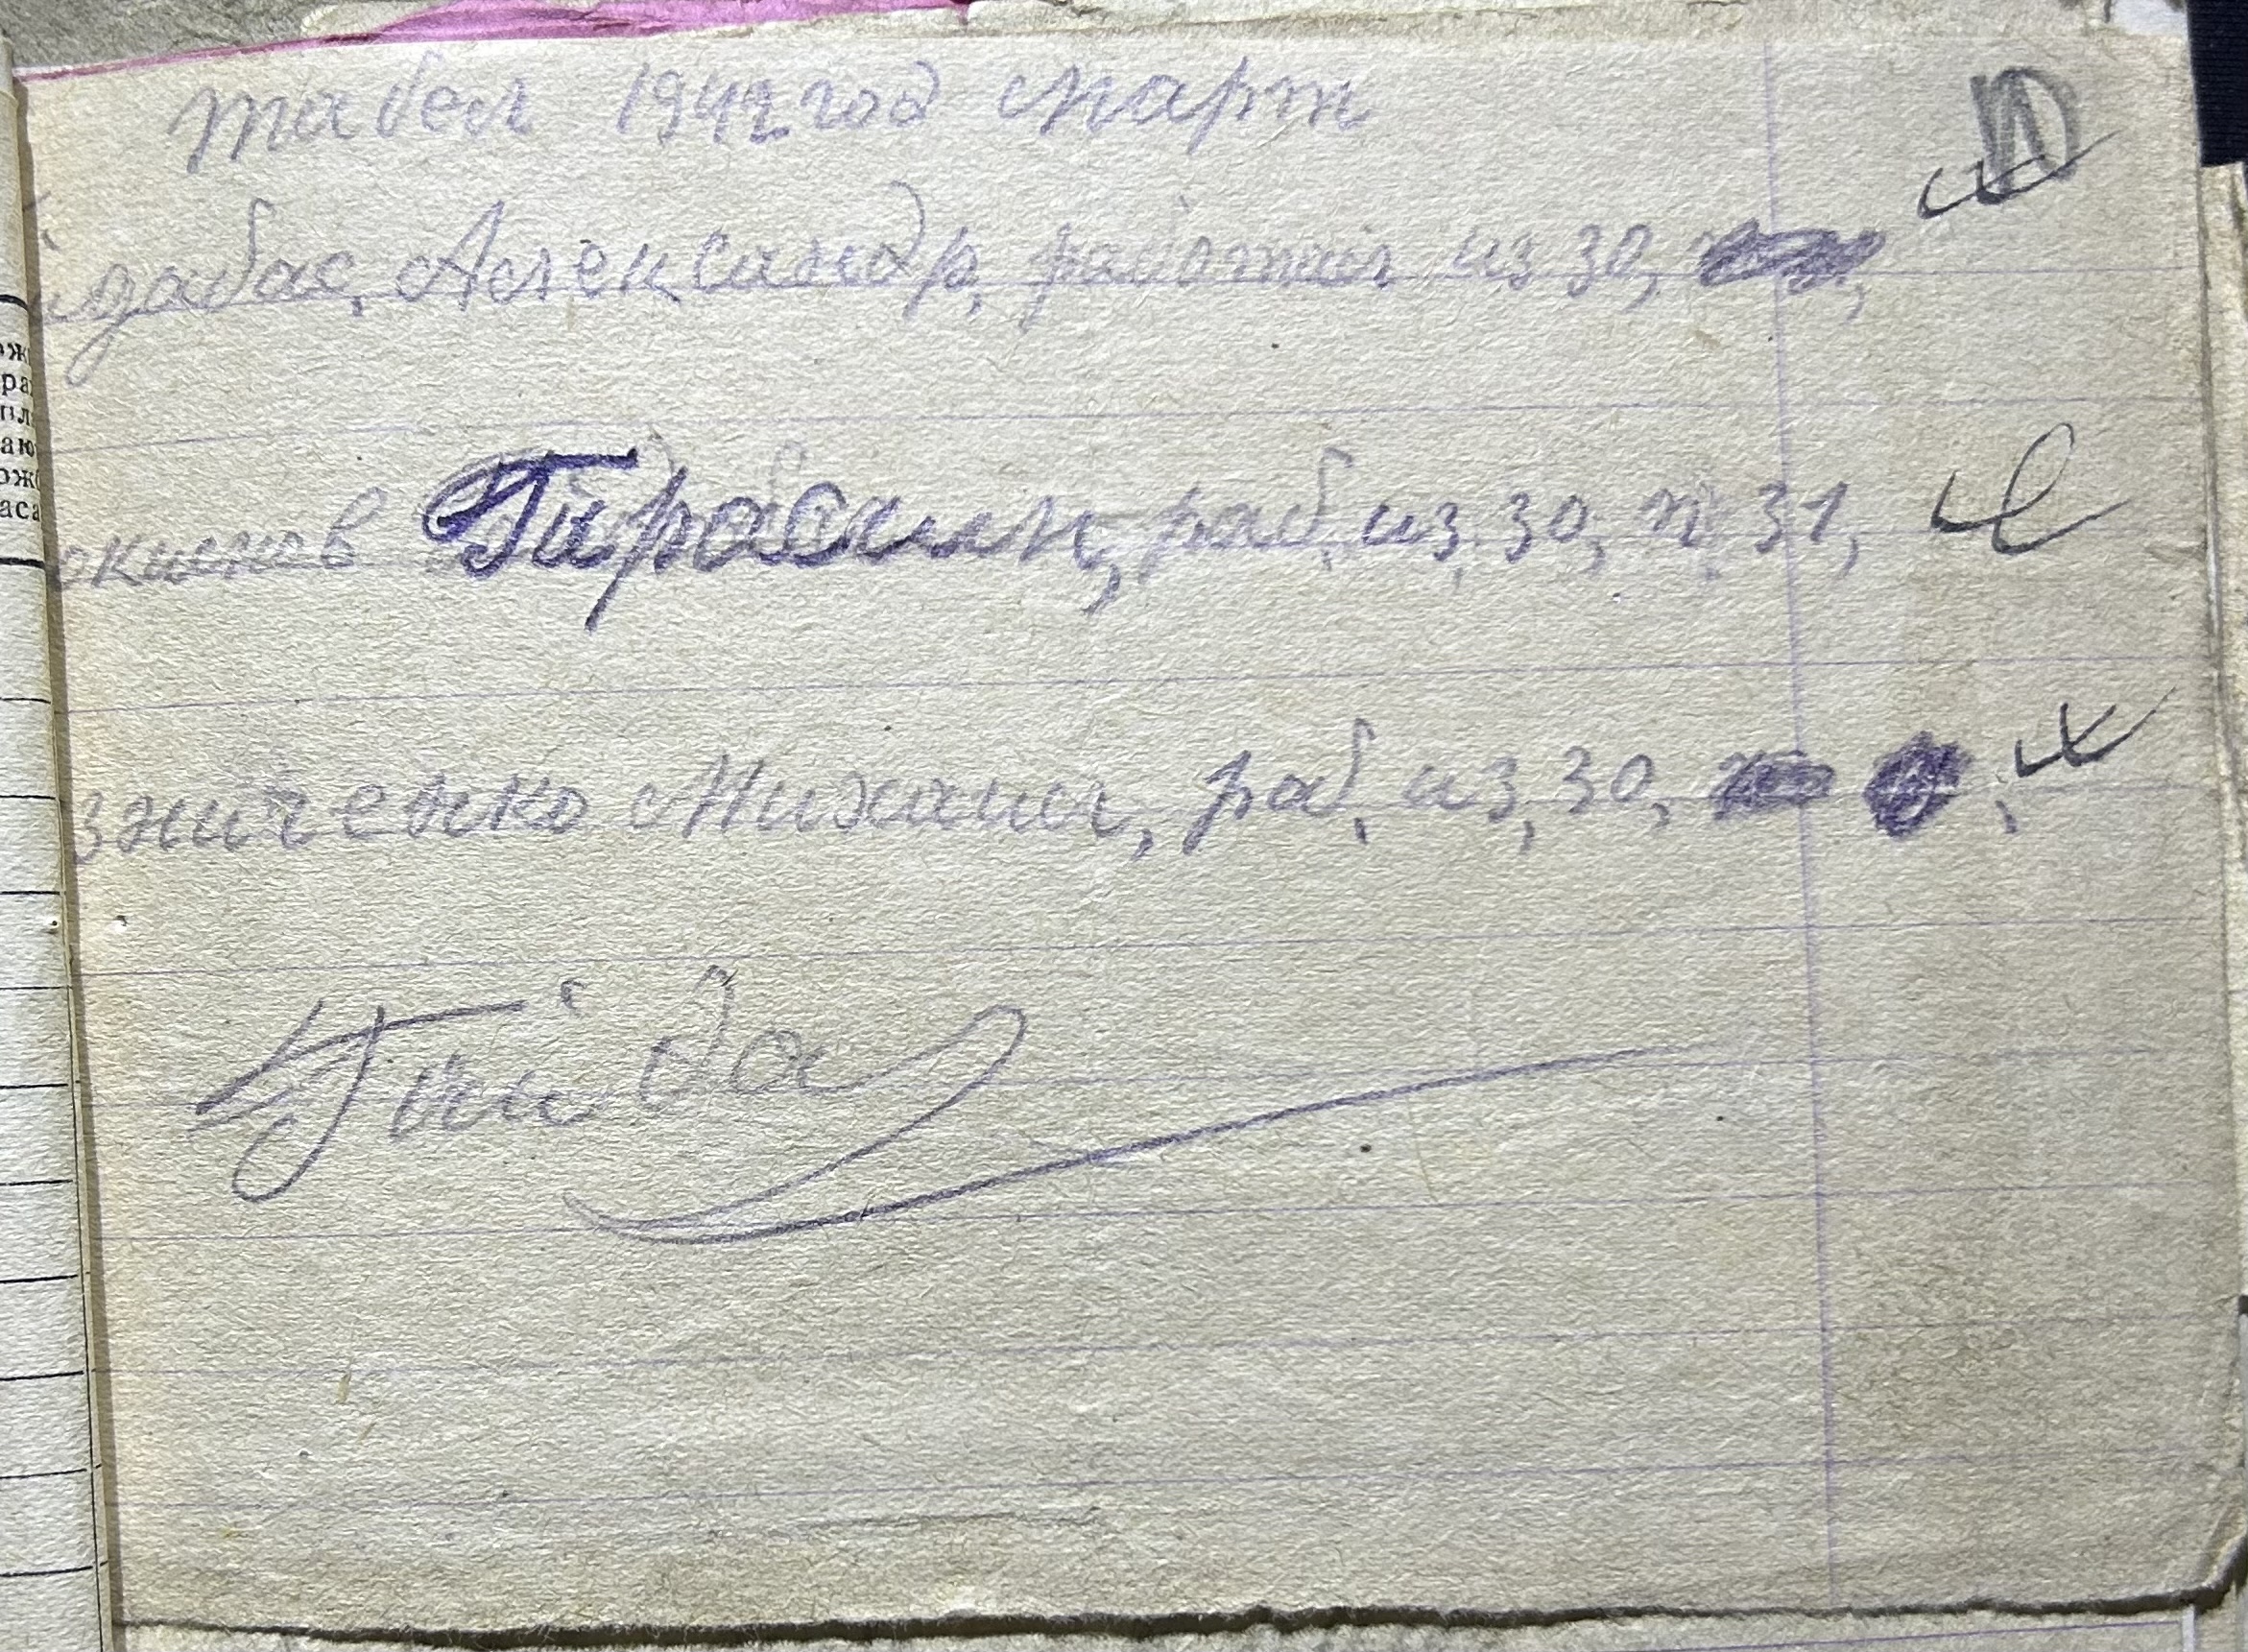 табел 1942 год март
Александр, работал из 30,
Гирасим, раб, из, 30, п 31,
зниченко Михаил, раб, из, 30,
Гайда
ож
ра
пл
аю
ож
аса